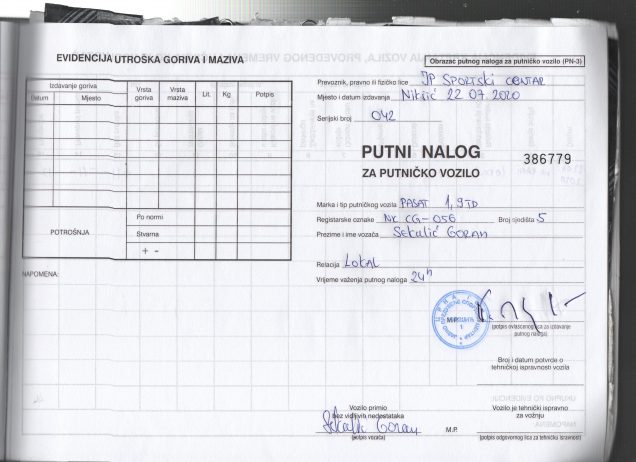 EVIDENCIJA UTROŠKA GORIVA I MAZIVA
Izdavanje goriva
Datum Mjesto
Vrsta goriva
Vrsta maziva
Lit.
Kg
Potpis
POTROŠNJA
Po normi
Stvarna
+ -
NAPOMENA:
Obrazac putnog naloga za putničko vozilo (PN-3)
Prevoznik, pravno ili fizičko lice JP SPORTSKI CENTAR
Mjesto i datum izdavanja Nikšić 22 07 2020
Serijski broj 042
PUTNI NALOG
ZA PUTNIČKO VOZILO
386779
Marka i tip putničkog vozila PASAT 1,9 TD
Registarske oznake NK CG-056 Broj sjedišta 5
Prezime i ime vozača Sekulić Goran
Relacija LOKAL
Vrijeme važenja putnog naloga 24h
M.P.
(potpis ovlašćenog lica za izdavanje
putnog naloga)
Broj i datum potvrde o
tehničkoj ispravnosti vozila
Vozilo primio
bez vidljivih nedostataka
Sekulić Goran
(potpis vozača)
M.P.
Vozilo je tehnički ispravno
za vožnju
(potpis odgovornog lica za tehničku ispravnost)